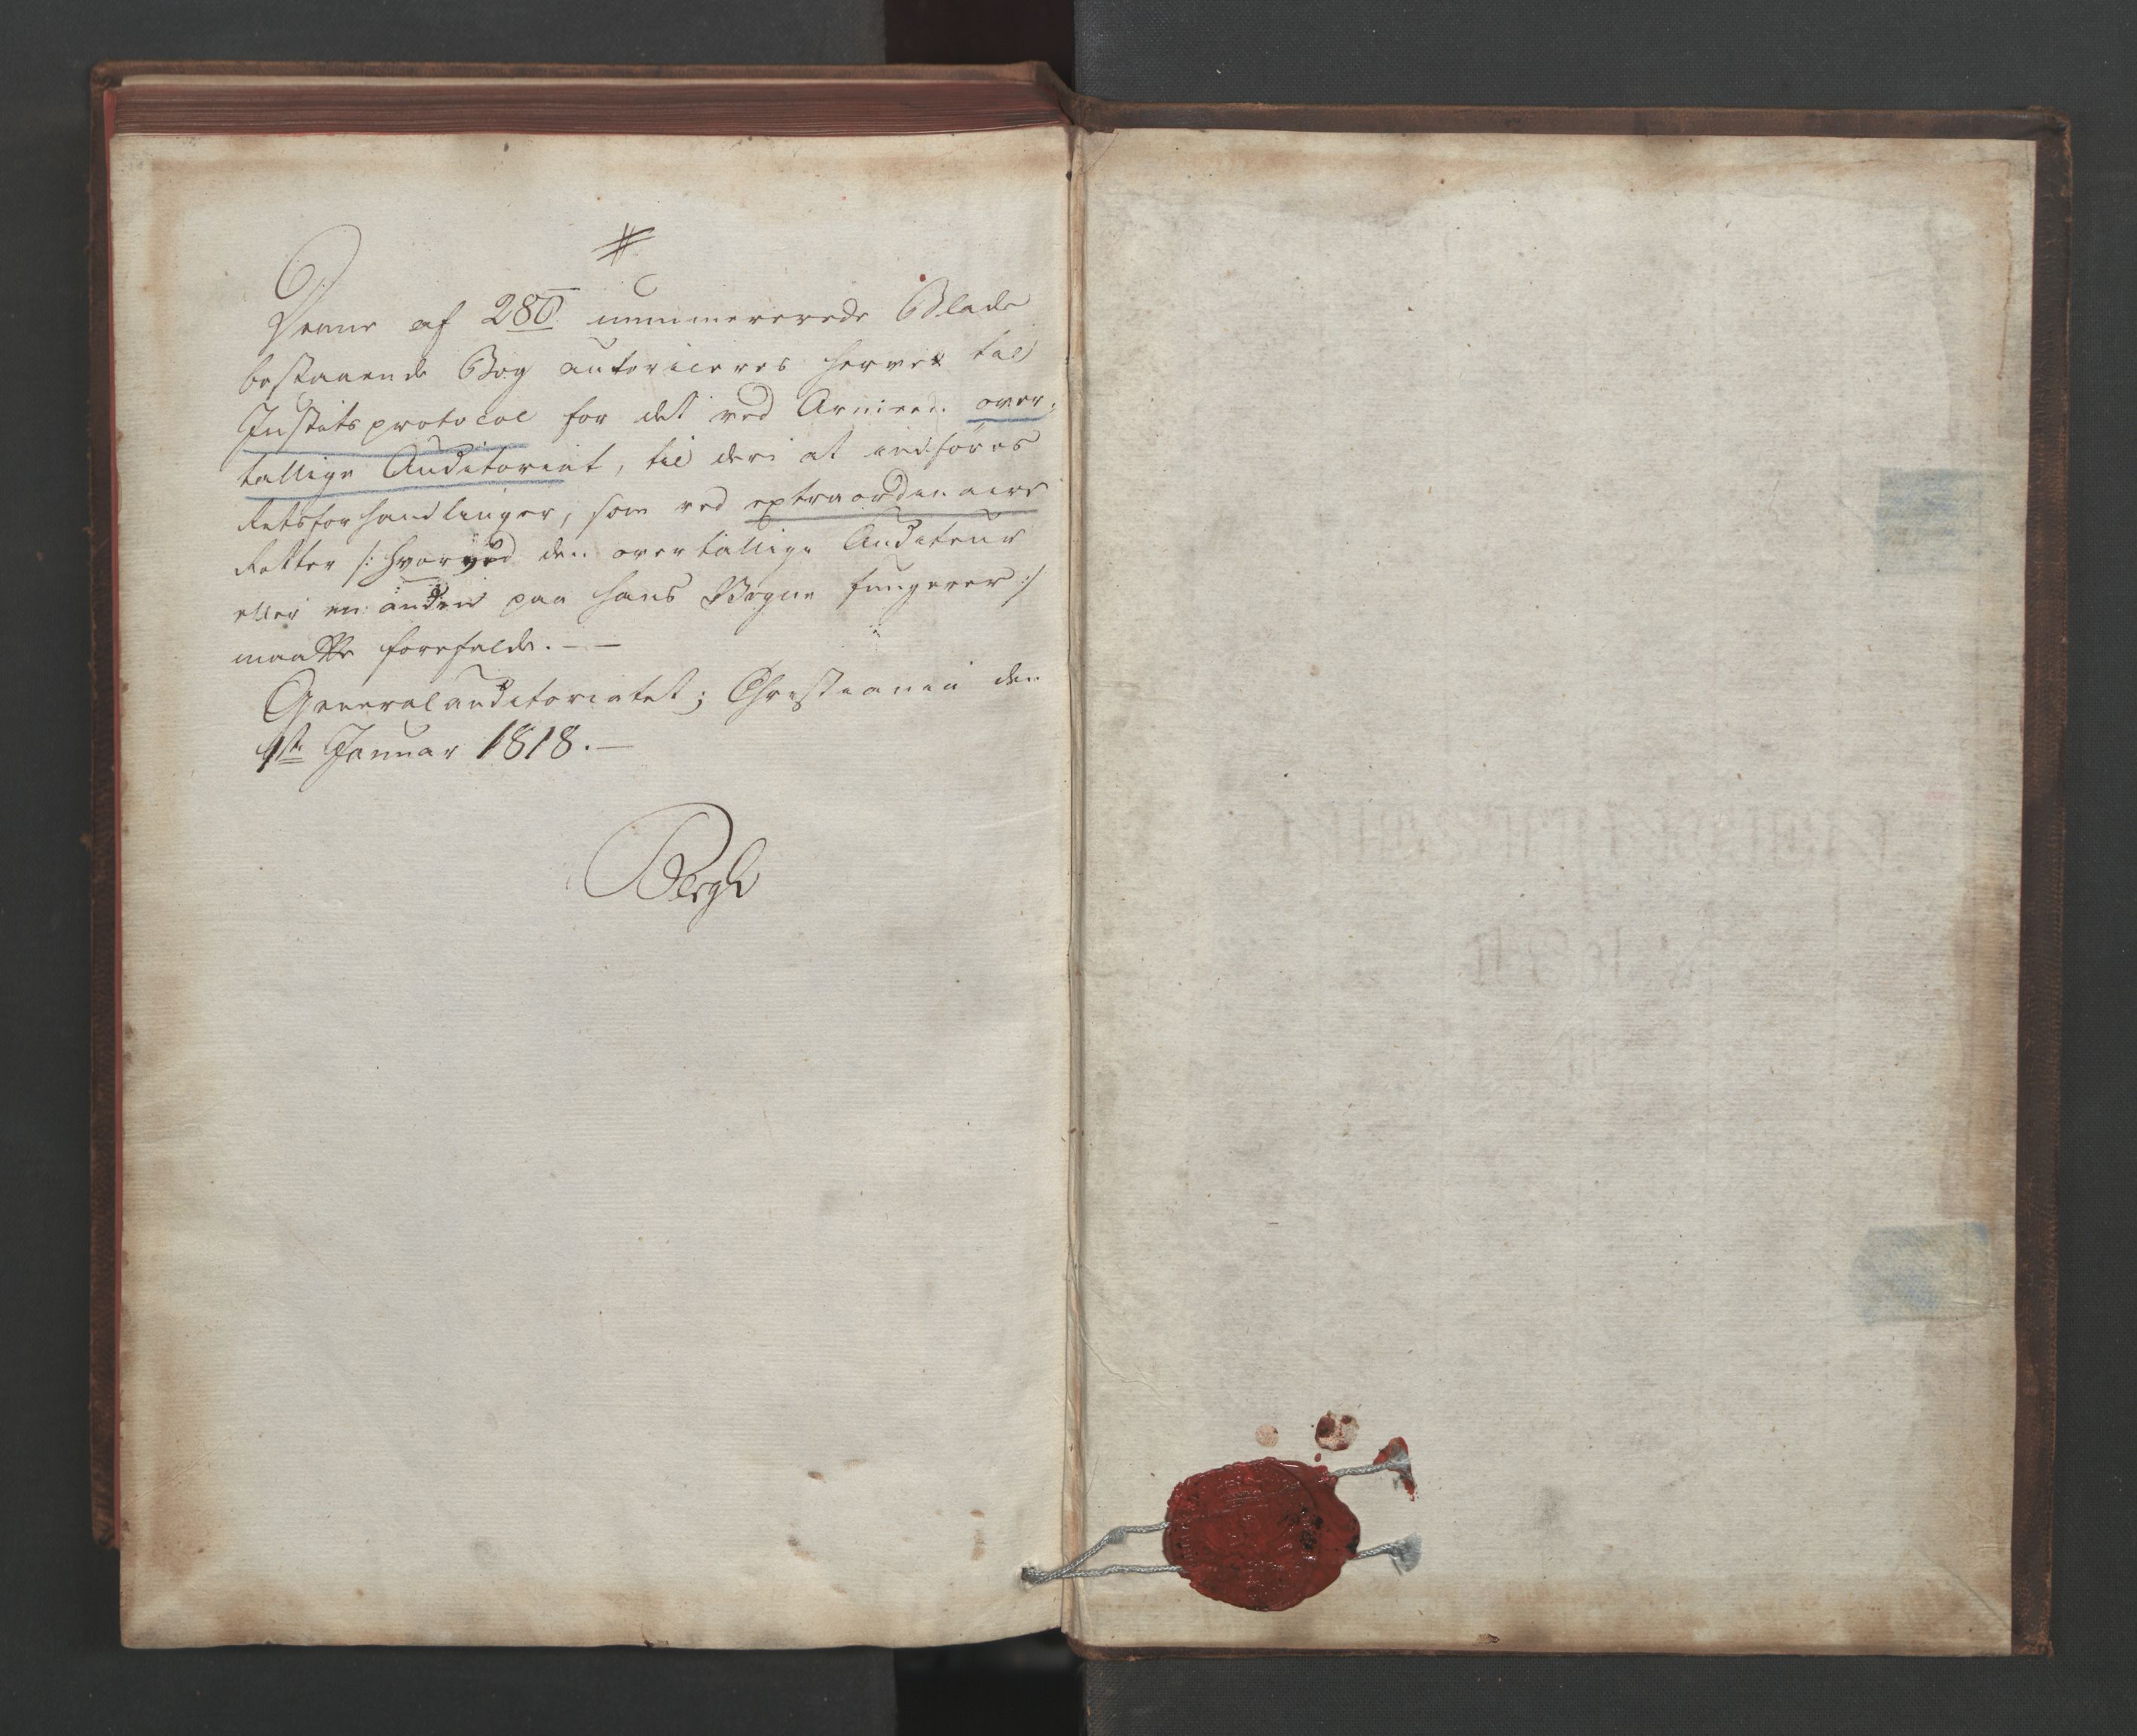 #
Denne af 280 nummererede Blade
bestaaende Bog autoriceres herved til
Justitsprotocol for det ved Armeen over:
tallige Auditoriat, til deri at indføres
Retsforhandlinger, som ved extraordinaire
Retter /: hvorved den overtallige Auditeur
eller en anden paa hans Vegne fungerer :/
maatte forefalde. — —
Generalauditoriatet; Christiania den
1ste Januar 1818. —
Bergh